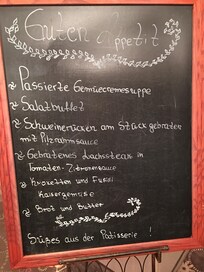 Guten Appetit
Passierte Gemüsecremesuppe
Salatbuffet
Schweinerücken am Stück gebraten
mit Pilzrahmsauce
Gebratenes Lachssteak in
Tomaten-Zitronensauce
Kroketten und Fusili
Kaisergemüse
Brot und Butter
Süßes aus der Patisserie !